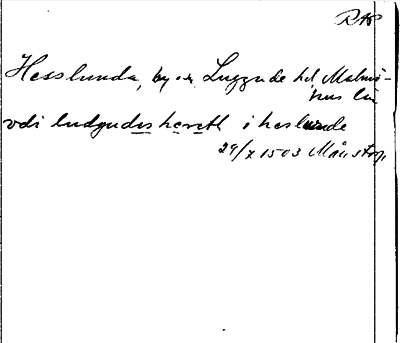 RAP
Hesslunda, by o. s. Luggude hd Malmö-
hus län
vdi ludgudes hereth i heslunde
29/7 1503 Månstorp.